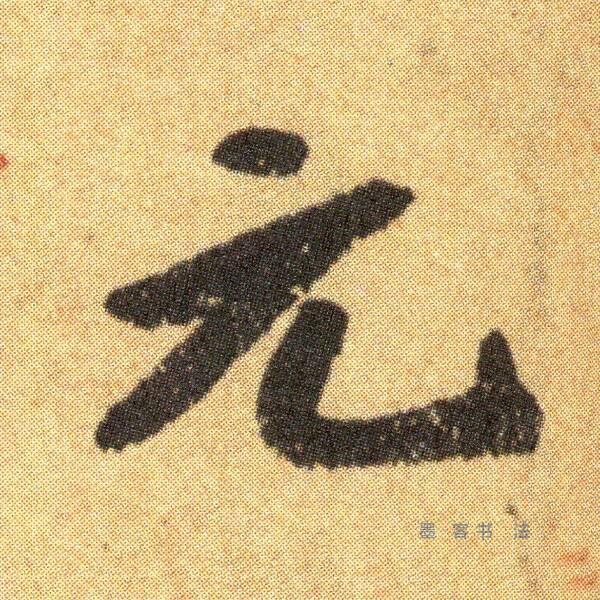 元
墨客书法